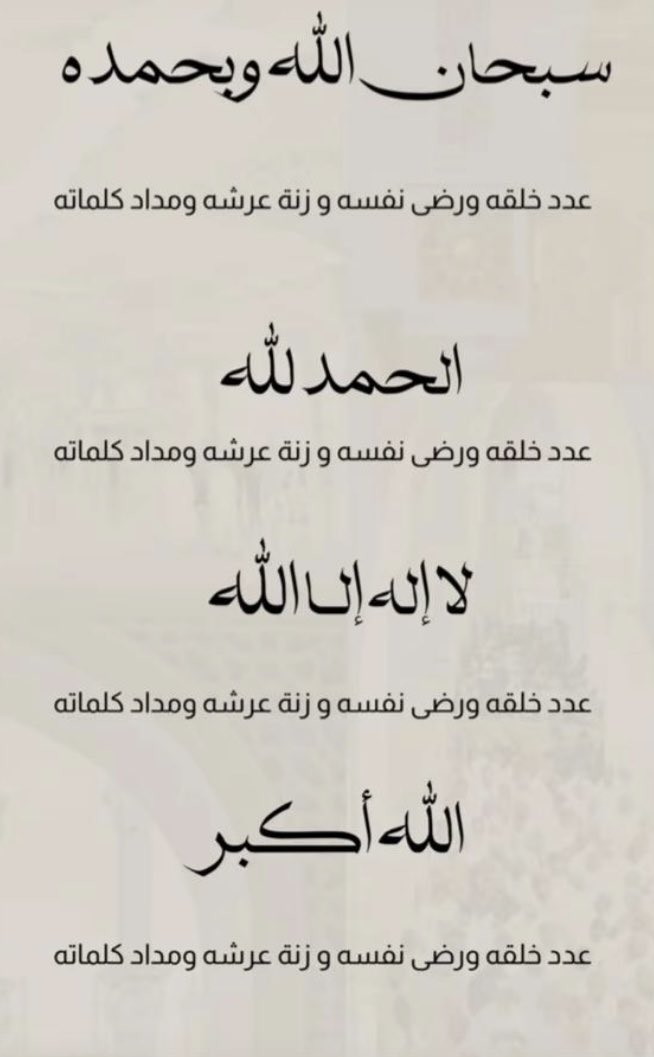 سبحان الله وبحمده
عدد خلقه ورضى نفسه و زنة عرشه ومداد كلماته
الحمد لله
عدد خلقه ورضى نفسه و زنة عرشه ومداد كلماته
لا إله إلا الله
عدد خلقه ورضى نفسه و زنة عرشه ومداد كلماته
الله أكبر
عدد خلقه ورضى نفسه و زنة عرشه ومداد كلماته